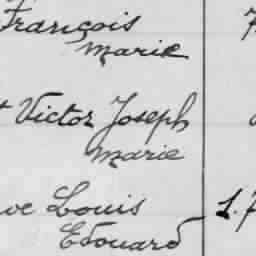 François
Marie
Victor Joseph
Marie
Louis
Edouard